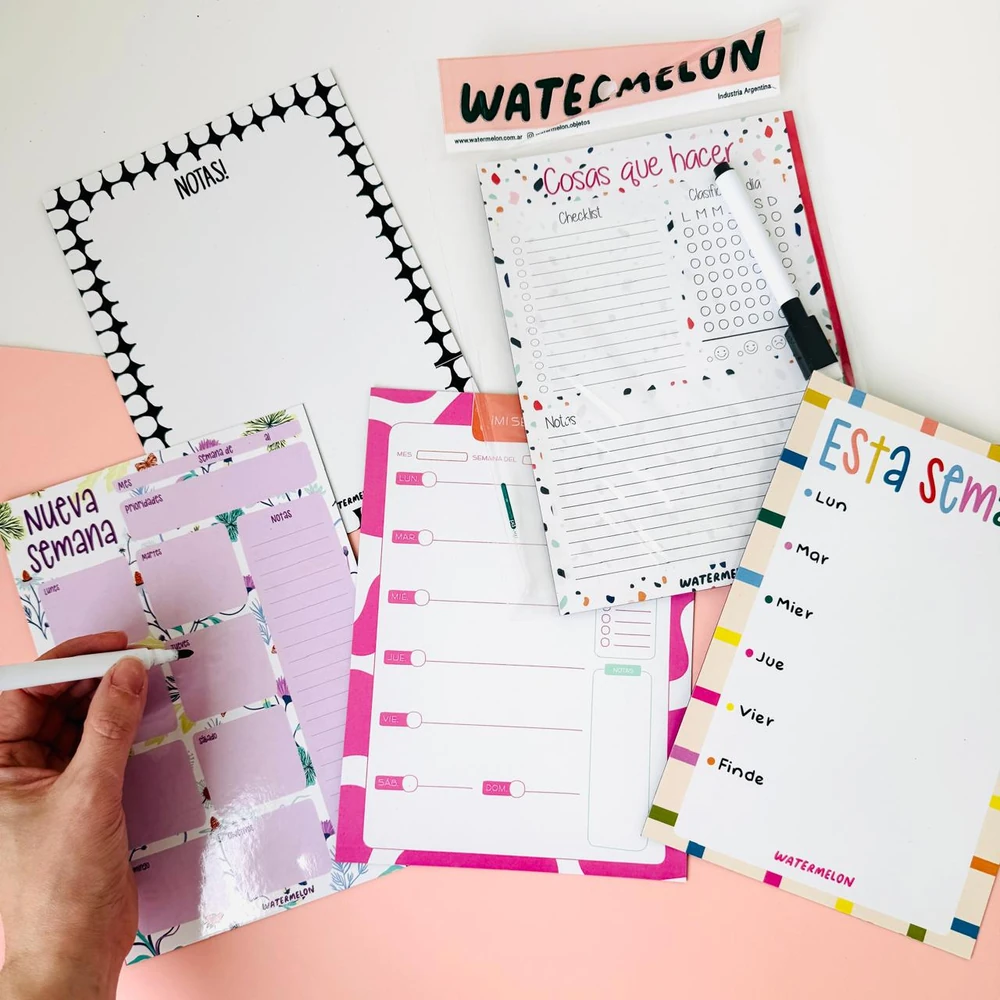 WATERMELON
Industria Argentina
www.watermelon.com.ar watermelon.objetos
NOTAS!
Cosas que hacer
Checklist
día
L M M S D
Notas
WATERME
NUEVA
semana
Mes
semana de al
Prioridades
Notas
Lunes
Martes
sábado
WATERMELON
¡MI SE
MES SEMANA DEL
LUN.
MAR.
MIÉ.
JUE.
VIE.
SÁB. DOM.
NOTAS
Esta sema
Lun
Mar
Mier
Jue
Vier
Finde
WATERMELON